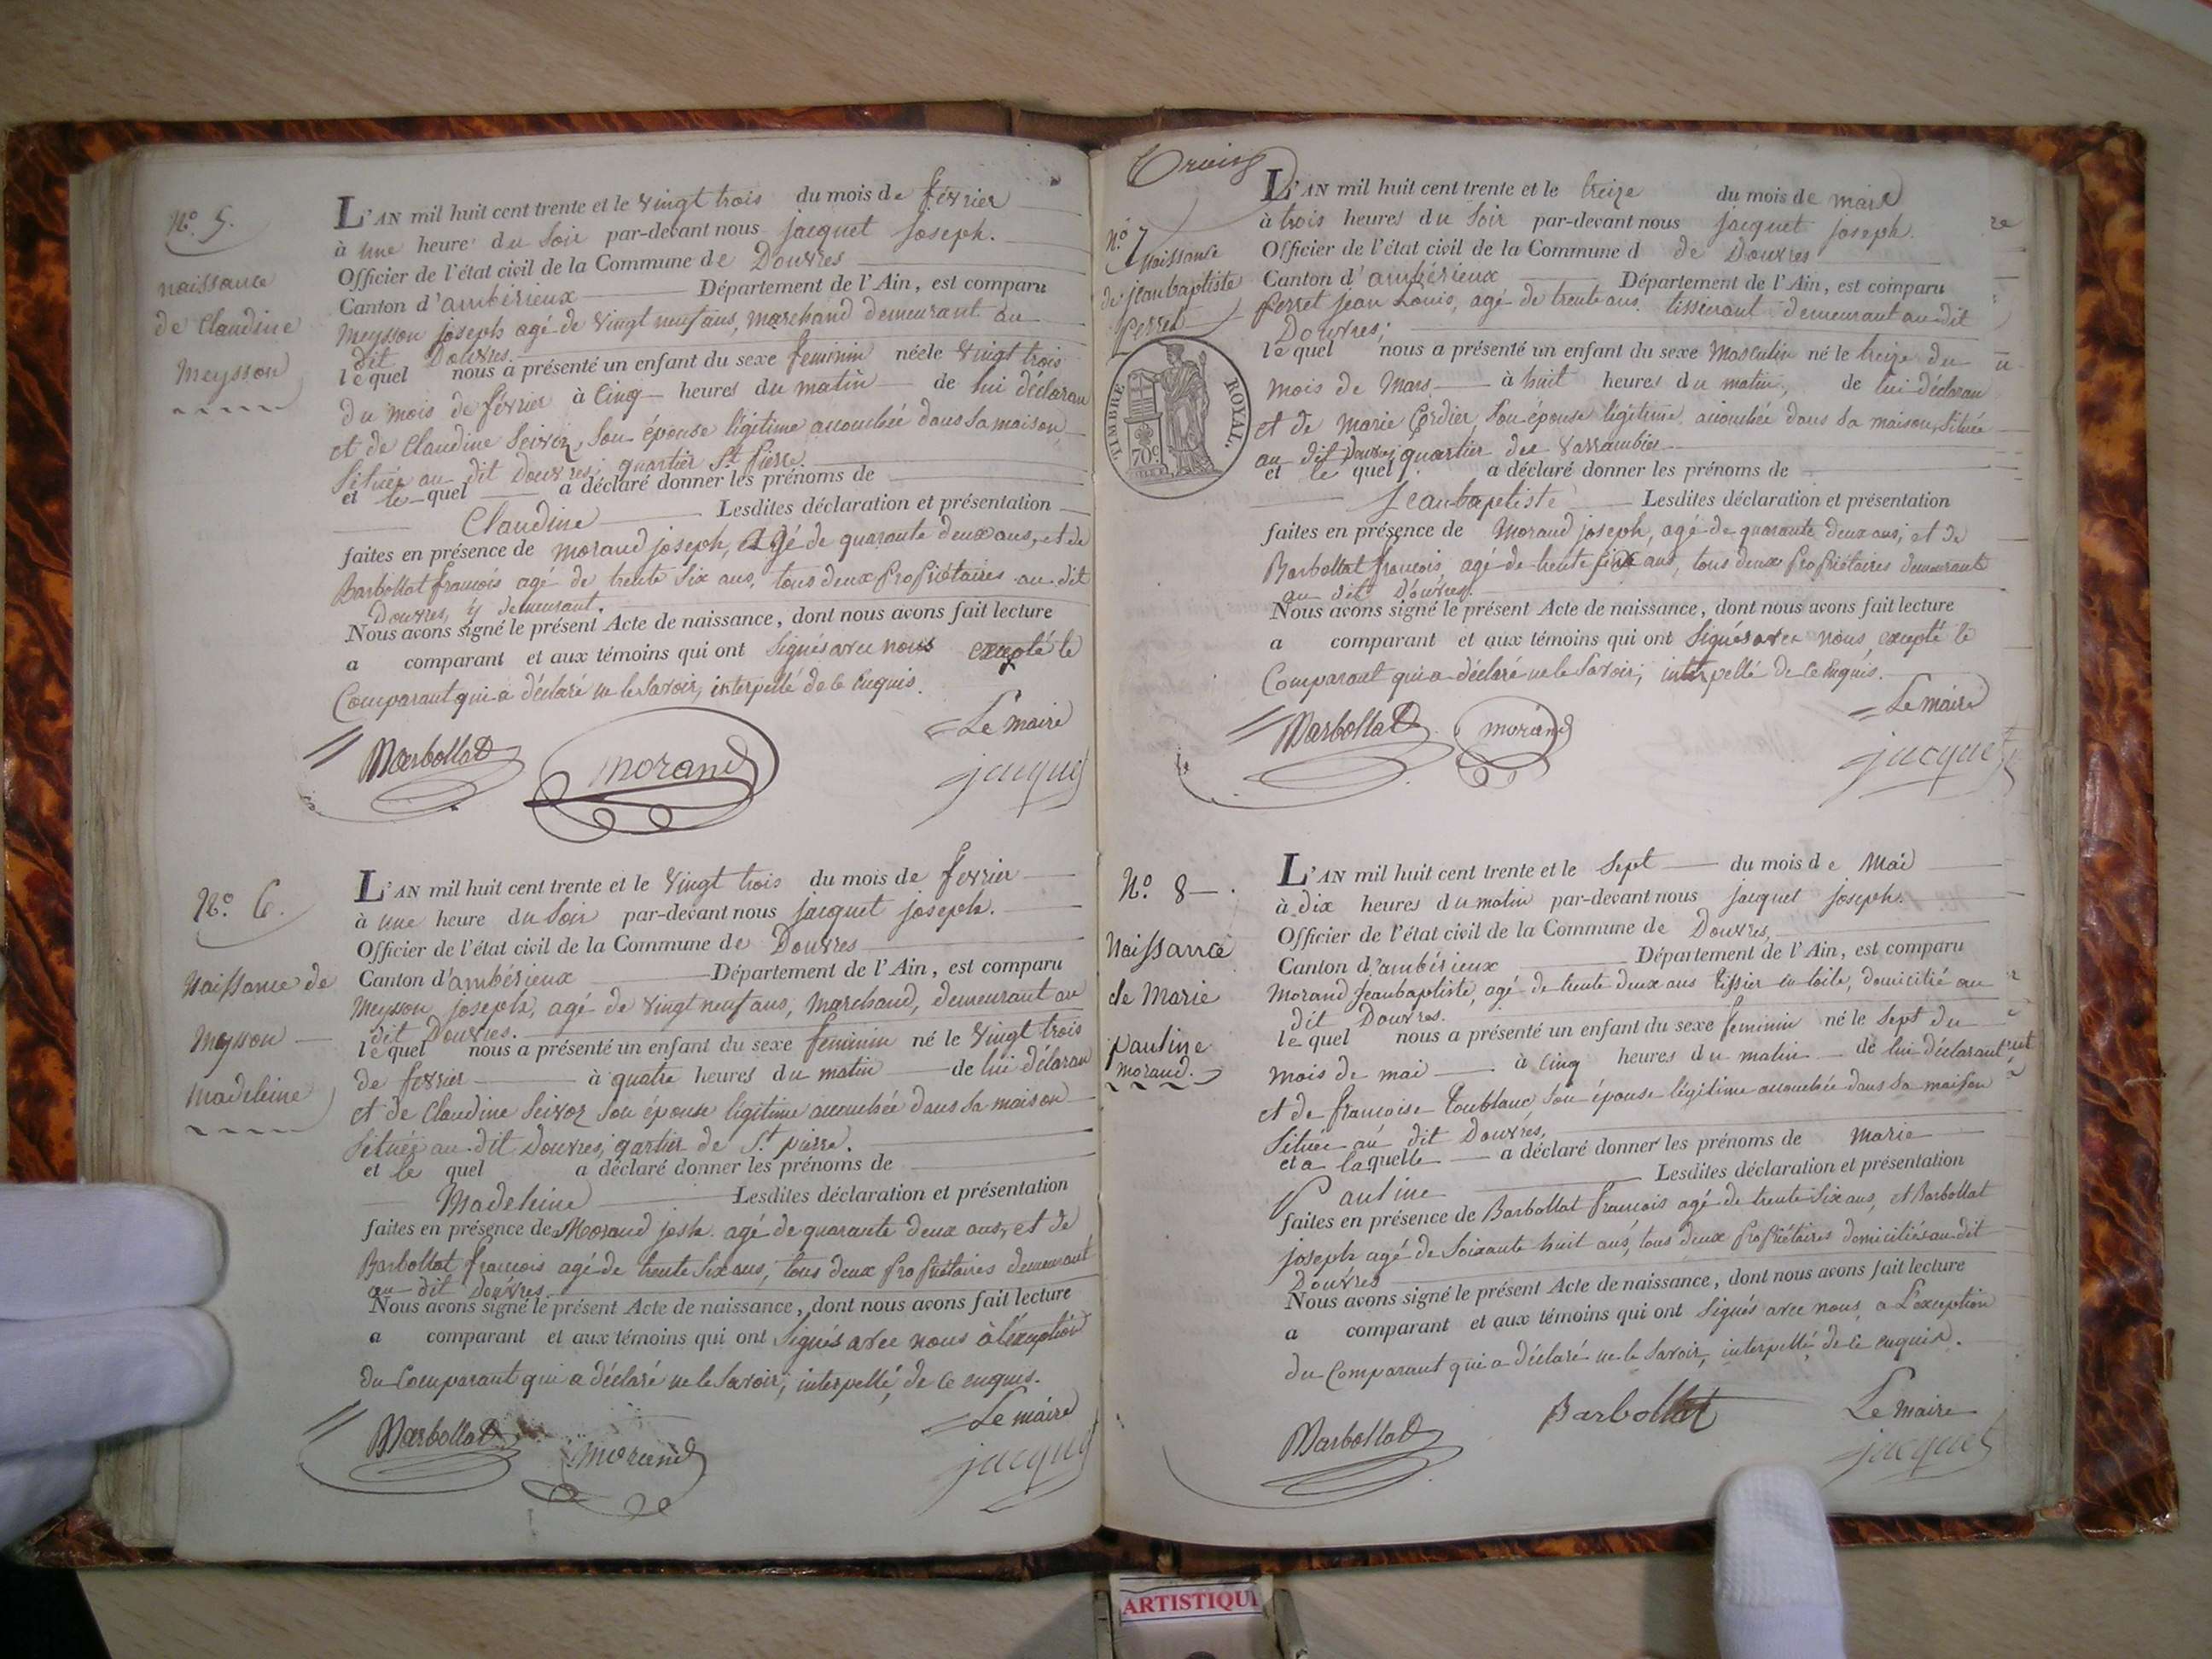 N.o 5.
naissance
de Claudine
Meysson
L'AN mil huit cent trente et le vingt trois du mois de février
à une heure du Soir par-devant nous jacquet joseph.
Officier de l'état civil de la Commune de Douvres
Canton d'ambérieux Département de l'Ain, est comparu
Meysson joseph agé de vingt neuf ans, marchand demeurant au
dit Douvres.
lequel nous a présenté un enfant du sexe feminin née le vingt trois
du mois de février à Cinq heures du matin de lui déclaran
et de Claudine Seivoz, son épouse légitime accouchée dans sa maison
Située au dit Douvres, quartier St. pierre
et le quel a déclaré donner les prénoms de
Claudine Lesdites déclaration et présentation
faites en présence de morand joseph, agé de quarante deux ans, et de
Barbollat françois agé de trente six ans, tous deux propriétaires au dit
Douvres, y demeurant.
Nous avons signé le présent Acte de naissance, dont nous avons fait lecture
a comparant et aux témoins qui ont Signés avec nous excepté le
Comparant qui a déclaré ne le Savoir, interpellé de le enquis.
Le maire
Barbollat morand jacquet
N.o 6.
Naissance de
Meysson
Madeleine
L'AN mil huit cent trente et le vingt trois du mois de fevrier
à une heure du Soir par-devant nous jacquet joseph.
Officier de l'état civil de la Commune de Douvres
Canton d'ambérieux Département de l'Ain, est comparu
Meysson joseph, agé de vingt neuf ans, marchand, demeurant au
dit Douvres.
lequel nous a présenté un enfant du sexe feminin né le vingt trois
de fevrier à quatre heures du matin de lui déclaran
et de Claudine Seivoz son épouse légitime accouchée dans sa maison
Située au dit Douvres, qartier de St. pierre.
et le quel a déclaré donner les prénoms de
Madeleine Lesdites déclaration et présentation
faites en présence de Morand josh. agé de quarante deux ans, et de
Barbollat françois agé de trente six ans, tous deux propriétaires demeurant
au dit Douvres
Nous avons signé le présent Acte de naissance, dont nous avons fait lecture
a comparant et aux témoins qui ont Signés avec nous à l'exception
du Comparant qui a déclaré ne le Savoir, interpellé de ce enquis.
Le maire
Barbollat morand jacquet
N.o 7
Naissance
de jeanbaptiste
perret
TIMBRE ROYAL.
70c
L'AN mil huit cent trente et le treize du mois de mars
à trois heures du Soir par-devant nous jacquet joseph.
Officier de l'état civil de la Commune d de Douvres
Canton d'ambérieux Département de l'Ain, est comparu
perret jean Louis, agé de trente ans. tisserant demeurant au dit
Douvres;
lequel nous a présenté un enfant du sexe Masculin né le treize du
mois de Mars à huit heures du matin, de lui déclaran
et de Marie Cordier son épouse légitime accouchée dans sa maison, située
au dit Douvres quartier des
et le quel a déclaré donner les prénoms de
jeanbaptiste Lesdites déclaration et présentation
faites en présence de Morand joseph, agé de quarante deux ans, et de
Barbollat françois, agé de trente six ans, tous deux propriétaires demeurant
au dit Douvres.
Nous avons signé le présent Acte de naissance, dont nous avons fait lecture
a comparant et aux témoins qui ont Signés avec nous, excepté le
Comparant qui a déclaré ne le Savoir, interpellé de ce enquis.
Le maire
Barbollat morand jacquet
N.o 8
Naissance
de Marie
pauline
morand.
L'AN mil huit cent trente et le Sept du mois de Mai
à dix heures du matin par-devant nous jacquet joseph.
Officier de l'état civil de la Commune de Douvres,
Canton d'ambérieux Département de l'Ain, est comparu
Morand jeanbaptiste, agé de trente deux ans tissier en toile, domicilié au
dit Douvres.
lequel nous a présenté un enfant du sexe feminin né le Sept du
mois de mai à Cinq heures du matin de lui déclarant
et de françoise Toublanc son épouse légitime accouchée dans sa maison
Située au dit Douvres,
et a laquelle a déclaré donner les prénoms de Marie
Pauline Lesdites déclaration et présentation
faites en présence de Barbollat françois agé de trente six ans, et Barbollat
joseph agé de Soixante huit ans, tous deux propriétaires domiciliés au dit
Douvres
Nous avons signé le présent Acte de naissance, dont nous avons fait lecture
a comparant et aux témoins qui ont Signés avec nous a L'exception
du Comparant qui a déclaré ne le Savoir, interpellé de ce enquis.
Barbollat Barbollat Le maire
jacquet
ARTISTIQU